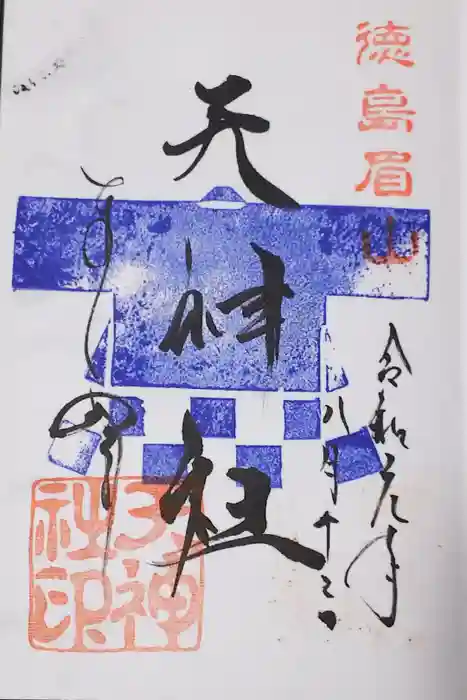 徳島眉山
令和元年
八月十三日
天神社
奉拝
天神
社印